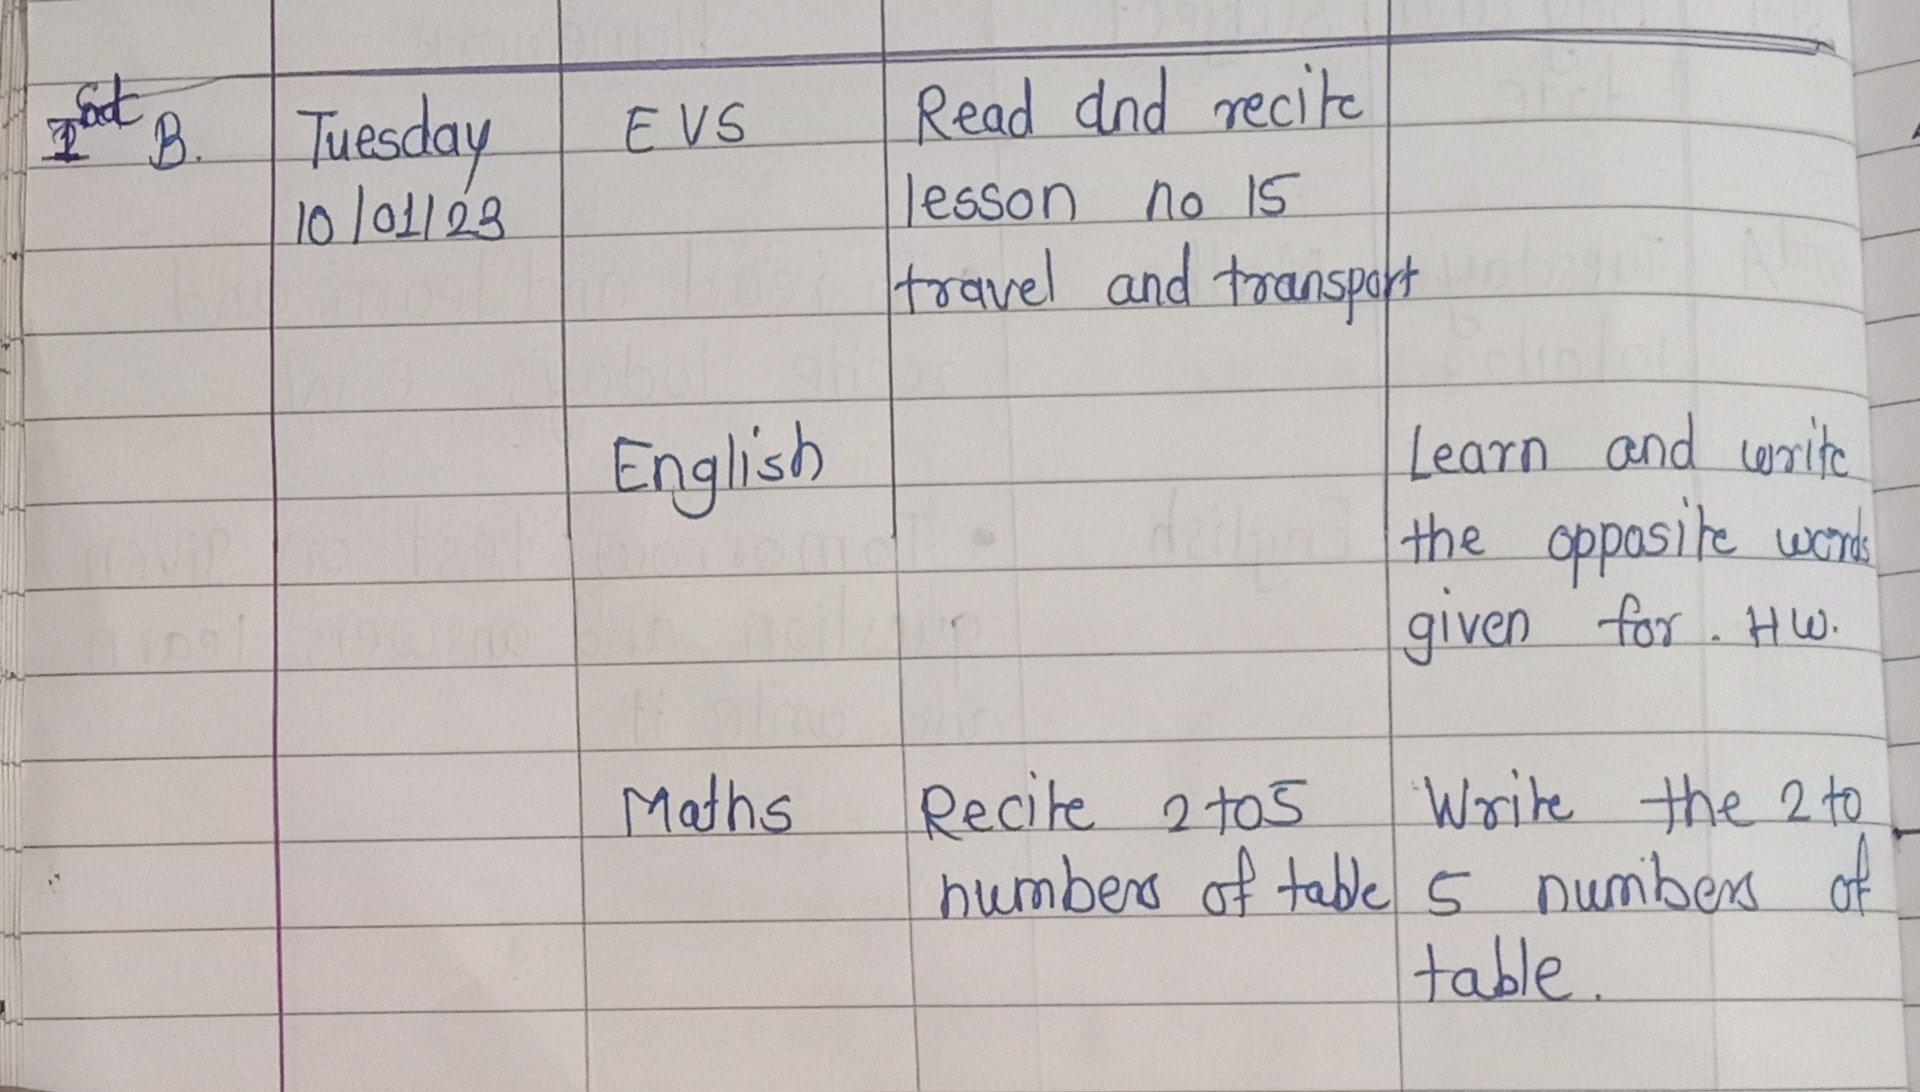 B.
Tuesday
10/01/23
EVS
Read and recite
lesson no 15
travel and transport
English
Learn and write
the opposite words
given for. HW.
Maths
Recite 2 to 5
numbers of table
Write the 2 to
5 numbers of
table.